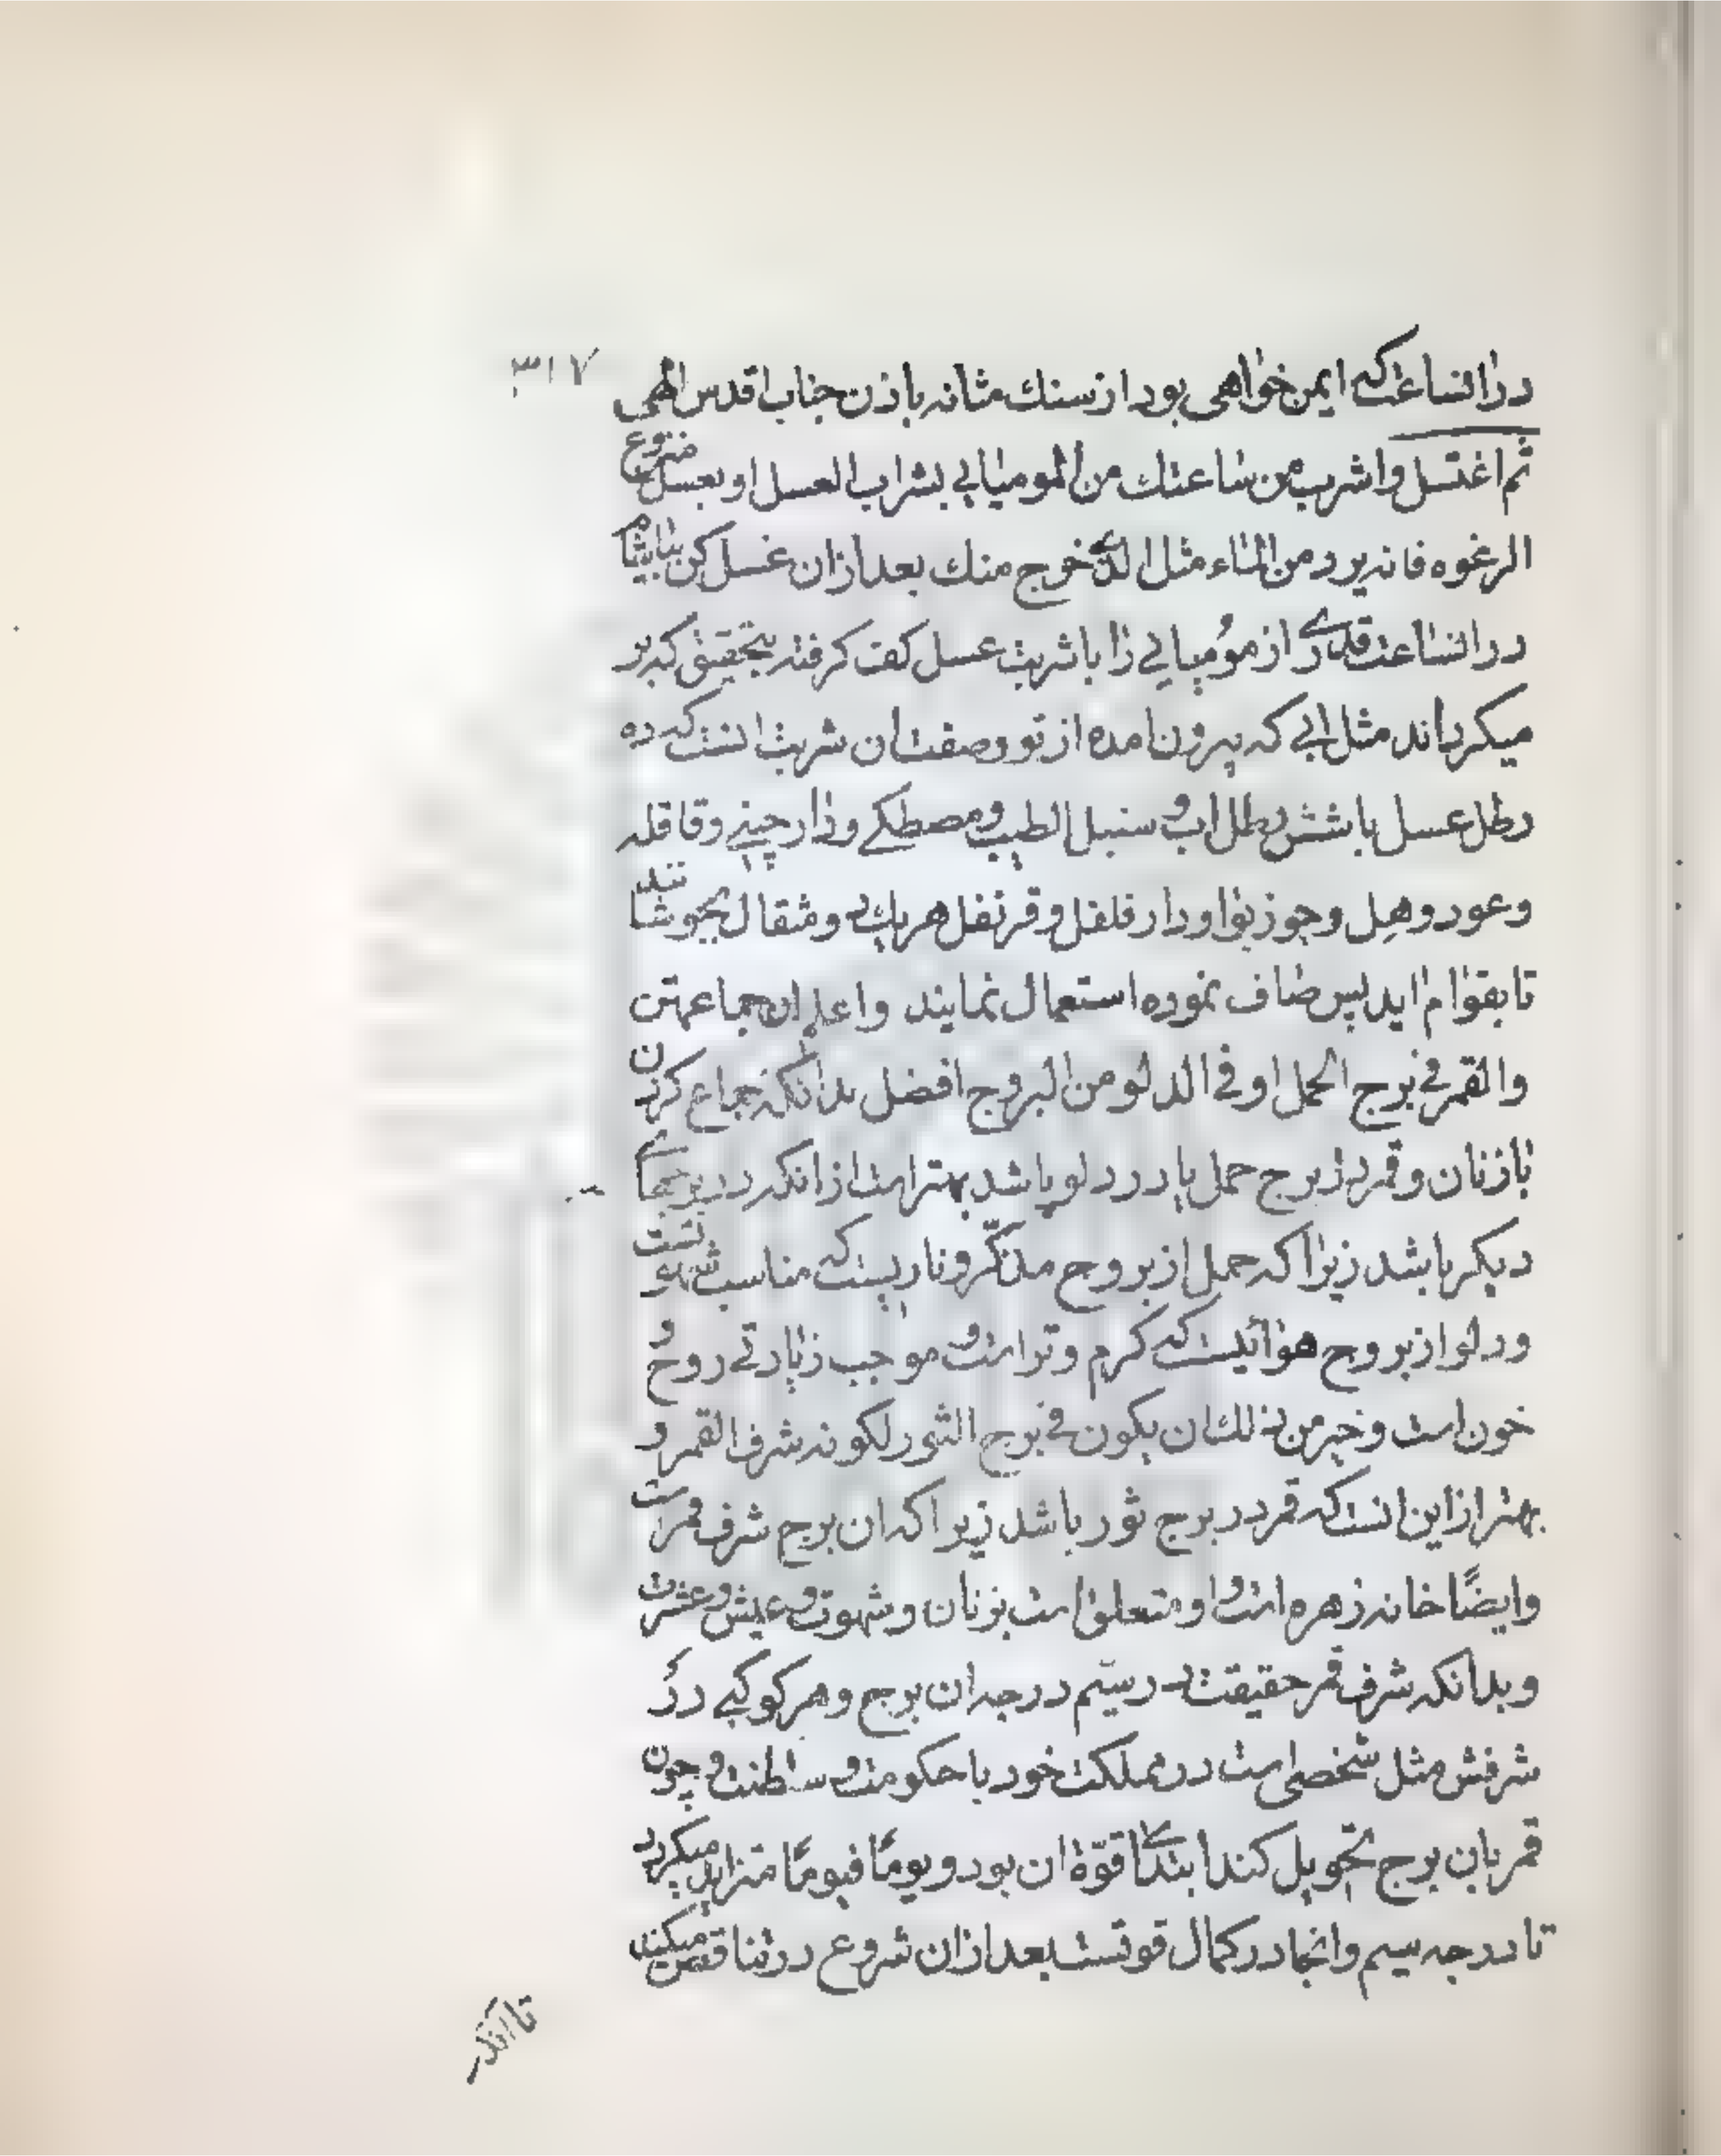 ۳۱۷
در انساعت که ایمن خواهی بود از سنك مثانه باذن جناب اقدس الهی
ثم اغتسل واشرب من ساعتك من المومیائی بشراب العسل او بعسل منزوع
الرغوه فانه یرد من الماء مثل الذی خرج منك بعد ازان غسل کن بیاشام
در انساعت قدری از مومیایی را با شربت عسل کف کرفته بتحقیق که بر
میکرداند مثل ابی که بیرون امده از تو وصفت ان شربت انست که ده
رطل عسل با شش رطل اب و سنبل الطیب و مصطکی و دارچینی و قاقله
وعود وهیل وجوز بوا و دار فلفل و قرنفل هریك دو مثقال بجوشانند
تا بقوام اید پس صاف نموده استعمال نمایند واعلم ان جماعهن
والقمر فی برج الحمل او فی الدلو من البروج افضل بدانکه جماع کردن
با زنان وقمر در برج حمل یا در دلو باشد بهتر است ازانکه در برجهای
دیکر باشد زیرا که حمل از بروج مذکر و ناریست که مناسب شهوتست
ودلو از بروج هوائیست که کرم وتر است و موجب زیادتی روح و
خون است وخیر من ذلك ان یکون فی برج الثور لکونه شرف القمر و
بهتر ازاین انست که قمر در برج ثور باشد زیرا که ان برج شرف قمر است
وایضًا خانه زهره است و او متعلق است بزنان وشهوت و عیش وعشرت
وبدانکه شرف قمر حقیقت در سیّم درجه ان برج وهر کوکبی در
شرفش مثل شخصی است در مملکت خود با حکومت و سلطنت و چون
قمر بان برج تحویل کند ابتدای قوّة ان بود و یومًا فیومًا متزاید میکردد
تا درجه سیم وانجا در کمال قوتست بعد ازان شروع در تناقص میکند
تا انکه